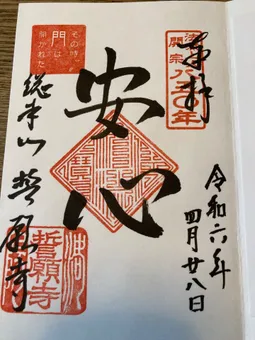 令和六年
四月廿八日
奉拝
開宗八五〇年
安心
その時、
門は
開かれた
総本山 誓願寺
誓願寺